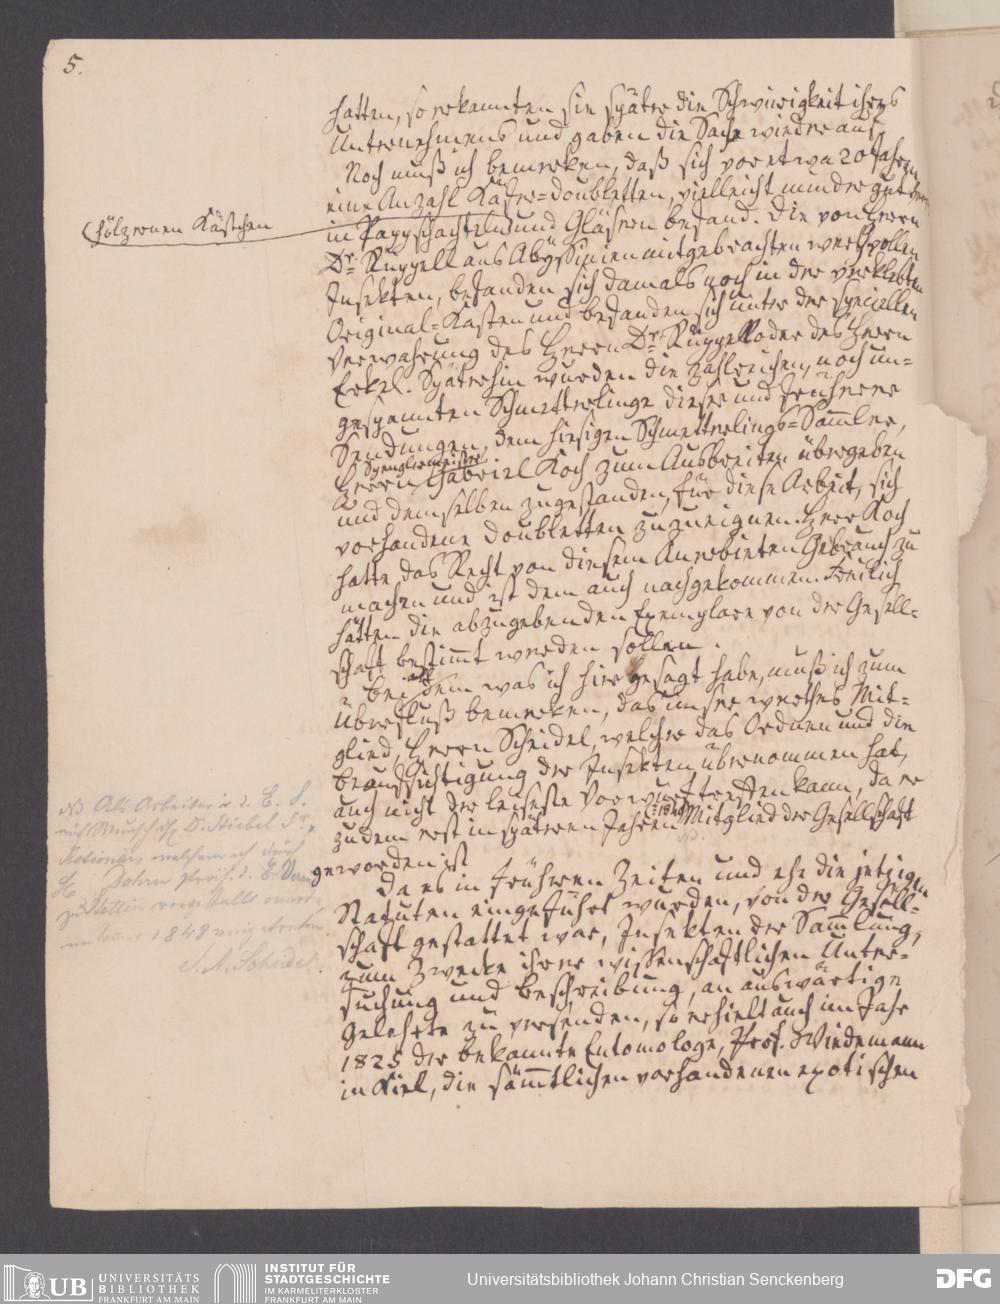 5.
hatten, so erkannten sie später die Schwierigkeit ihres
Unternehmens und gaben die Sache wieder auf.
Noch muß ich bemerken, daß sich vor etwa 20 Jahren
eine Anzahl Käfer=Doubletten, vielleicht minder gut
hölzernen Kästchen
in Pappschachteln und Gläsern befand. Die von Herrn
Dr. Rüppell aus Abÿssinien mitgebrachten werthvollen
Insekten, befanden sich damals noch in der verklebten
Original=Kasten und befanden sich unter der speciellen
Verwahrung des Herrn Dr. Rüppell oder des Herrn
Erkel. Späterhin wurden die zahlreichen, noch un=
gespannten Schmetterlinge dieser und früherer
Sendungen, dem hiesigen Schmetterlings=Sam̄ler,
Spenglermeister
Herrn Gabriel Koch zum Ausbreiten übergeben
und demselben zugestanden, für diese Arbeit, sich
vorhandene Doubletten zuzueignen. Herr Koch
hatte das Recht von diesem Anerbieten Gebrauch zu
machen und ist dem auch nachgekommen. Freilich
hätten die abzugebenden Exemplare von der Gesell=
schaft bestim̄t werden sollen.
all
Bei dem was ich hier gesagt habe, muß ich zum
Überfluß bemerken, das unser werthes Mit=
glied, Herrn Scheidel, welcher das Ordnen und die
Beaufsichtigung der Insekten übernommen hat,
auch nicht der leiseste Vorwurf treffen kann, da er
1849
zudem erst in späteren Jahren Mitglied der Gesellschaft
geworden ist
NB Als Arbeiter i. d. E. S.
Dr. Stiebel Sr.
Sectionär, welchem ich durch
H. Dohrn Präs. d. E. Verein
zu Stettin vorgestellt
1848 eingetreten
S. A. Scheidel
Da es in früheren Zeiten und ehe die jetzigen
Statuten eingeführt wurden, von der Gesell=
schaft gestattet war, Insekten der Sam̄lung,
zum Zwecke ihrer wissenschaftlichen Unter=
suchung und Beschreibung, an auswärtige
Gelehrte zu versenden, so erhielt auch im Jahr
1825 der bekannte Entomologe, Prof. Wiedemann
in Kiel, die säm̄tlichen vorhandenen exotischen
UB UNIVERSITÄTS
BIBLIOTHEK
FRANKFURT AM MAIN
INSTITUT FÜR
STADTGESCHICHTE
IM KARMELITERKLOSTER
FRANKFURT AM MAIN
Universitätsbibliothek Johann Christian Senckenberg
DFG